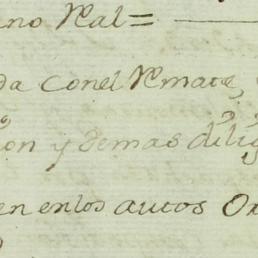 no Rˢal =
da conel Rˢmate,
on y demas dilig
en enlos autos Or